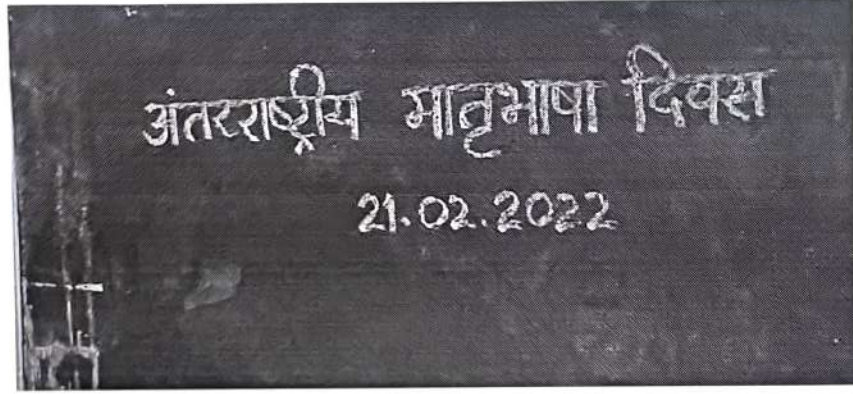 अंतरराष्ट्रीय मातृभाषा दिवस
21.02.2022